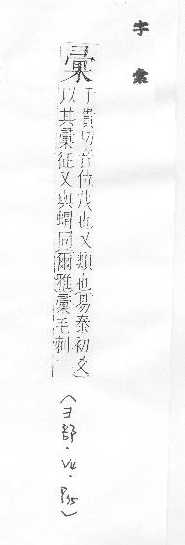 字彙
彙
于貴切音位茂也又類也易泰初爻
以其彙征又與蝟同爾雅彙毛刺
(彐部·V4·P35)